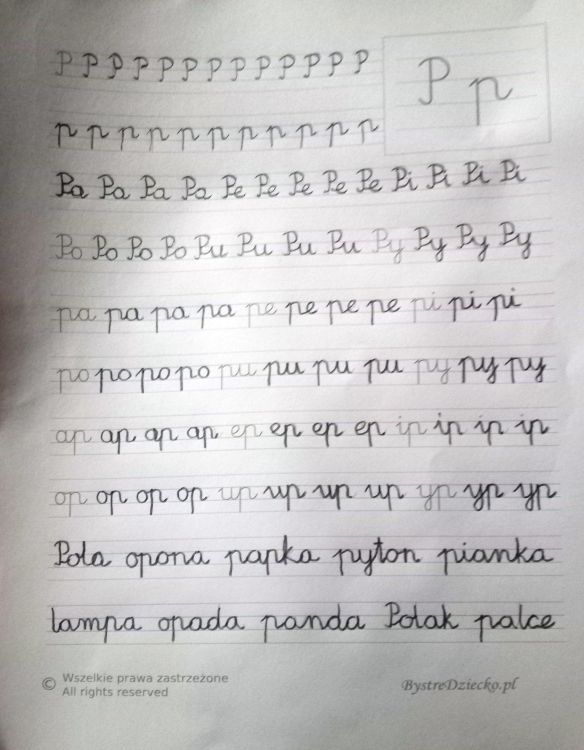 P P P P P P P P P P P P P
P p
p p p p p p p p p p p
Pa Pa Pa Pa Pe Pe Pe Pe Pe Pi Pi Pi Pi
Po Po Po Po Pu Pu Pu Pu Py Py Py Py
pa pa pa pa pe pe pe pe pi pi pi
po po po po pu pu pu pu py py py
ap ap ap ap ep ep ep ep ip ip ip ip
op op op op up up up up yp yp yp
Pola opona papka pyton pianka
lampa opada panda Polak palce
© Wszelkie prawa zastrzeżone
All rights reserved
BystreDziecko.pl